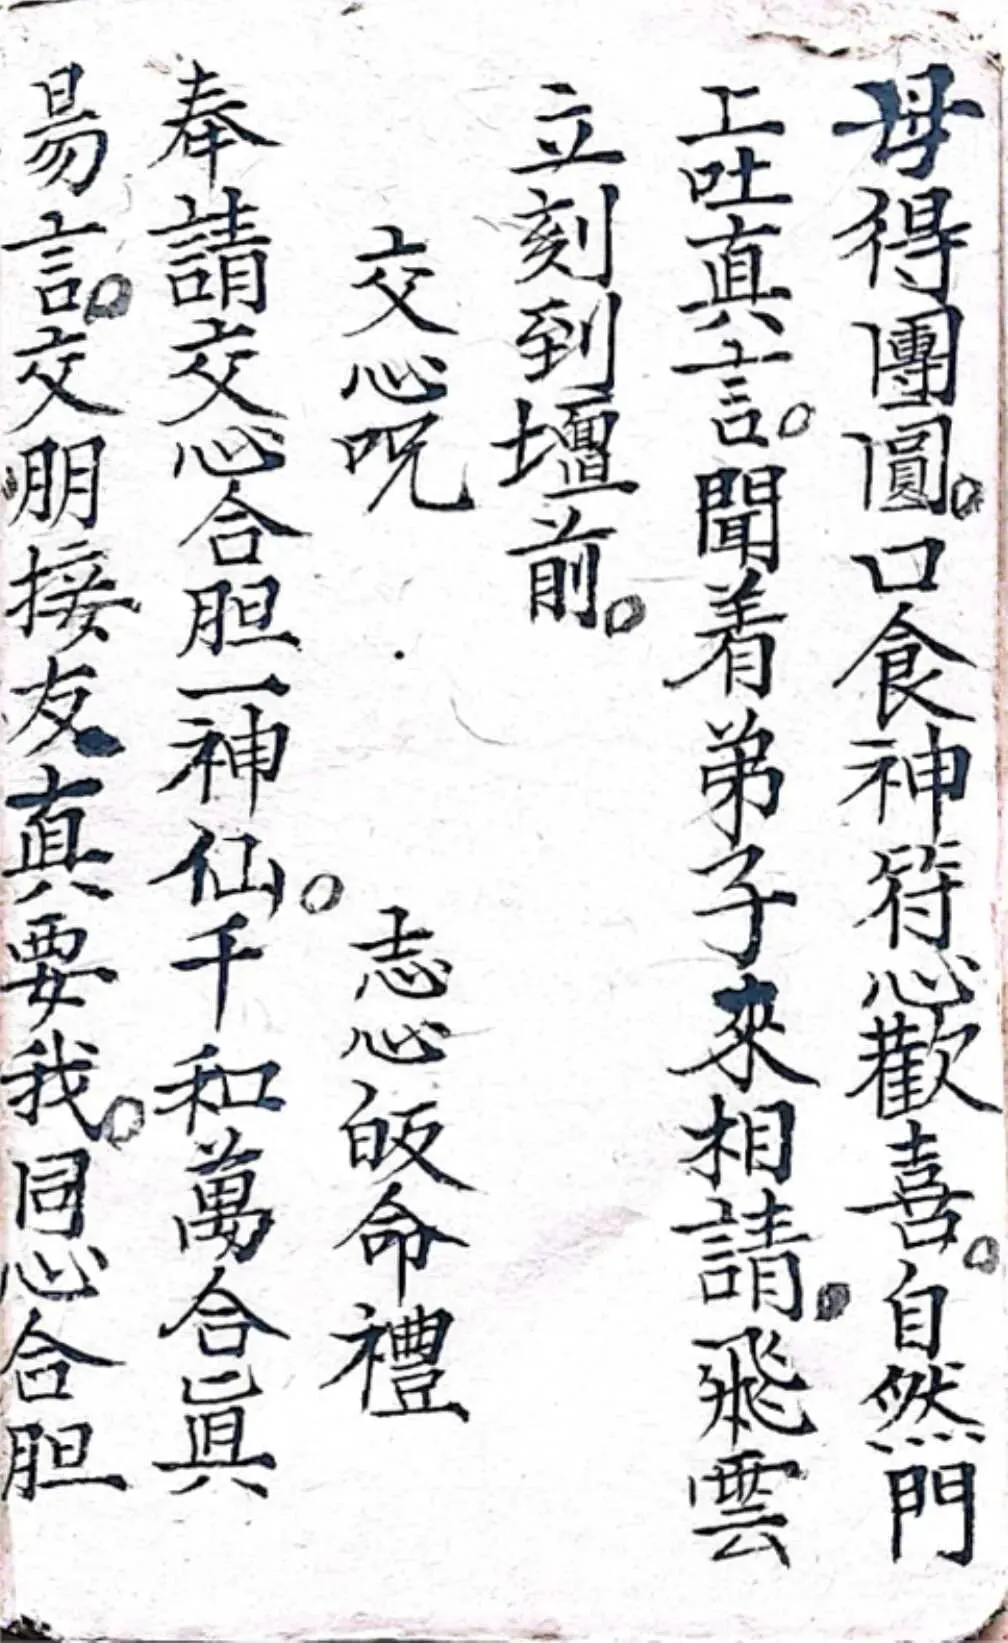 母得團圓。口食神符心歡喜。自然門
上吐真言。聞着弟子來相請。飛雲
立刻到壇前。
交心呪　志心皈命禮
奉請交心合胆一神仙。千和萬合眞
昜言。交朋接友真要我。同心合胆